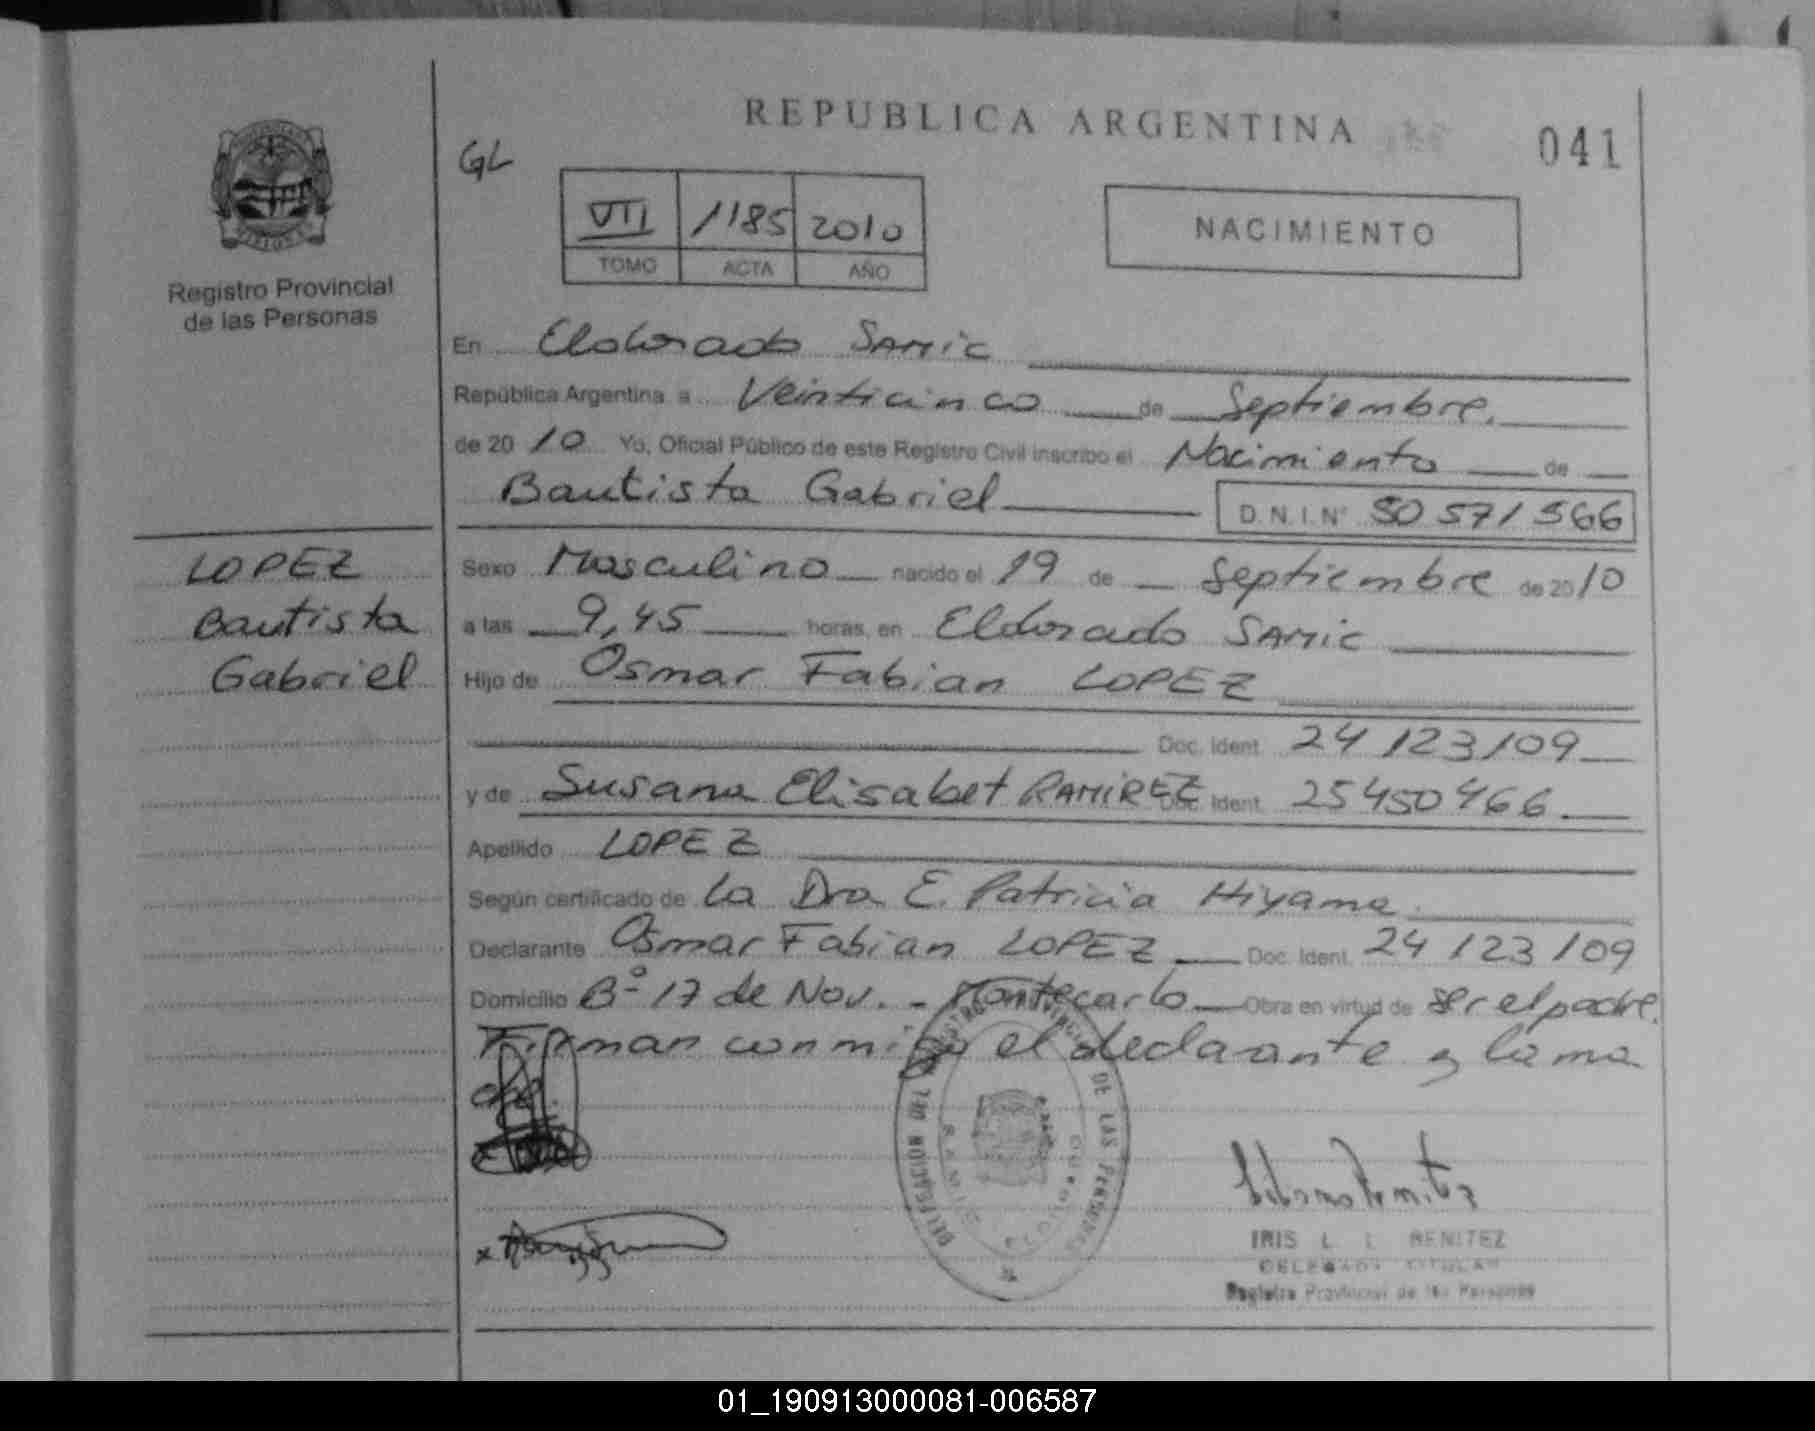 REPUBLICA ARGENTINA
041
GL
VII 1185 2010
TOMO ACTA AÑO
NACIMIENTO
Registro Provincial
de las Personas
En Eldorado SAMIC
República Argentina a Veinticinco de Septiembre.
de 20 10 Yo, Oficial Público de este Registro Civil inscribo el Nacimiento de
Bautista Gabriel D.N.I.Nº 50 571 566
LOPEZ
Bautista
Gabriel
Sexo Masculino nacido el 19 de Septiembre de 20 10
a las 9,45 horas, en Eldorado SAMIC
Hijo de Osmar Fabian LOPEZ
Doc. Ident. 24 123 109
y de Susana Elisabet RAMIREZ Doc. Ident. 25 450 466
Apellido LOPEZ
Según certificado de La Dra E. Patricia Hiyama.
Declarante Osmar Fabian LOPEZ Doc. Ident. 24 123 109
Domicilio Bº 17 de Nov. - Montecarlo Obra en virtud de ser el padre.
Firman conmigo el declarante y la ma
dre.
DELEGACION DEL REGISTRO PROVINCIAL DE LAS PERSONAS
SAMIC
ELDORADO
IRIS L. I. BENITEZ
DELEGADA TITULAR
Registro Provincial de las Personas
01_190913000081-006587